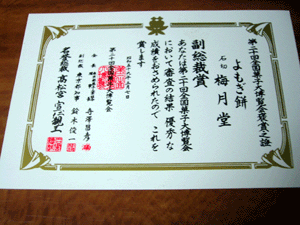 第二十回全国菓子大博覧会褒賞之證
よもぎ餅
石切 梅月堂
副総裁賞
あなたは第二十回全国菓子大博覧会
において審査の結果 優秀な
成績をおさめられたので これを
賞します
昭和五十九年三月七日
第二十回全国菓子大博覧会
鈴木俊一
名誉総裁 高松宮 宣仁親王